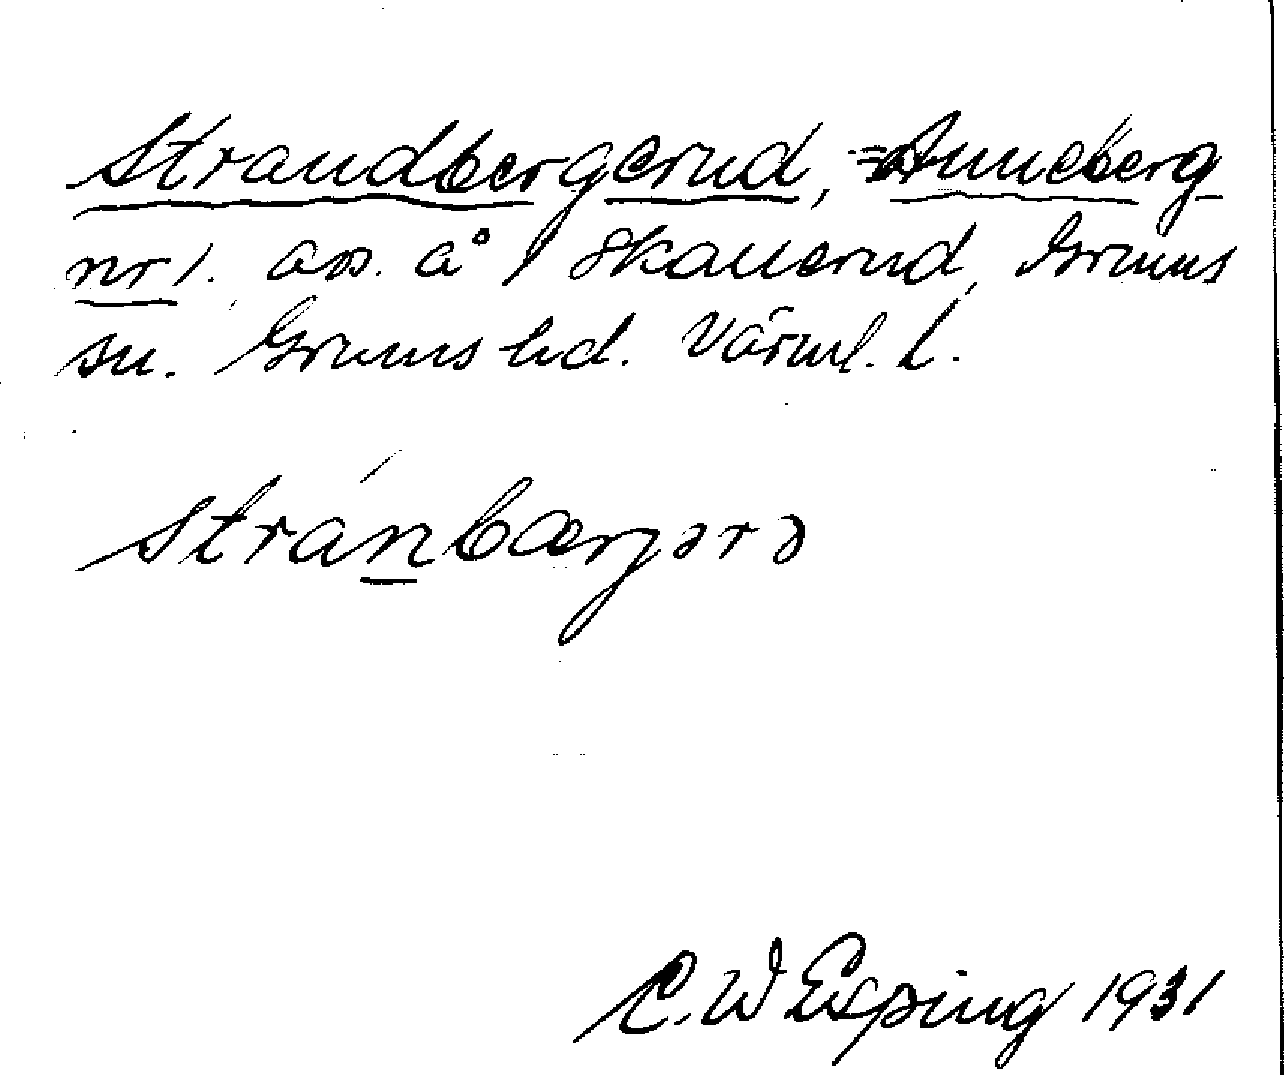 Strandbergerud, =Anneberg
nr 1. avs. å 1 Skallerud, Grums
sn. Grums hd. Värml. l.
stránbærjərə
C. W Esping 1931